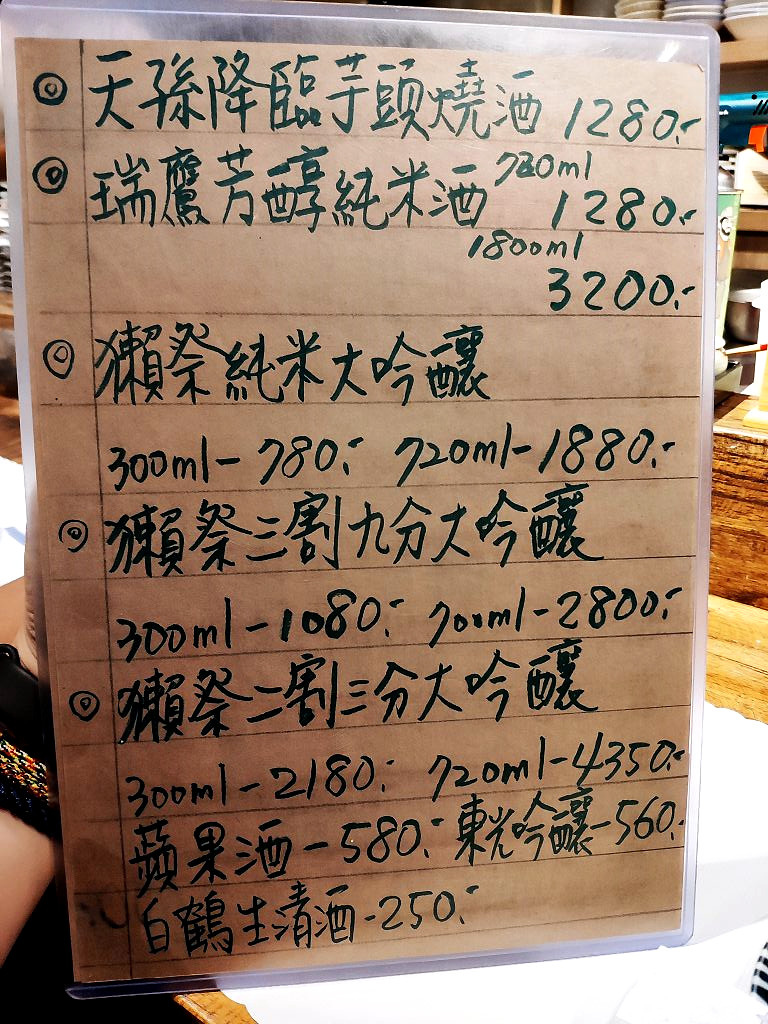 ◎ 天孫降臨芋頭燒酒 1280.-
◎ 瑞鷹芳醇純米酒 720ml 1280.-
1800ml
3200.-
◎ 獺祭純米大吟釀
300ml- 780.- 720ml-1880.-
◎ 獺祭三割九分大吟釀
300ml-1080.- 700ml-2800.-
◎ 獺祭二割三分大吟釀
300ml-2180.- 720ml-4350.-
蘋果酒-580.- 東光吟釀-560.-
白鶴生清酒-250.-